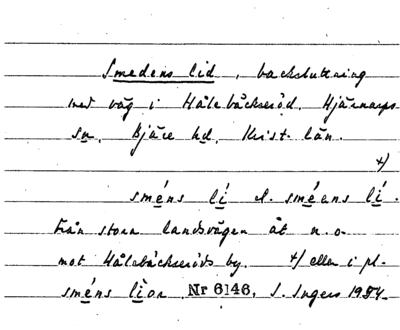 Smedens lid, backsluttning
med väg i Hålebäckseröd, Hjärnarps
sn, Bjäre hd, Krist. län.
+)
sméns lí l. sméens lí.
Från stora landsvägen åt n.o.
mot Hålebäckseröds by. +/ eller i pl.
sméns líor Nr 6146, I. Ingers 1954